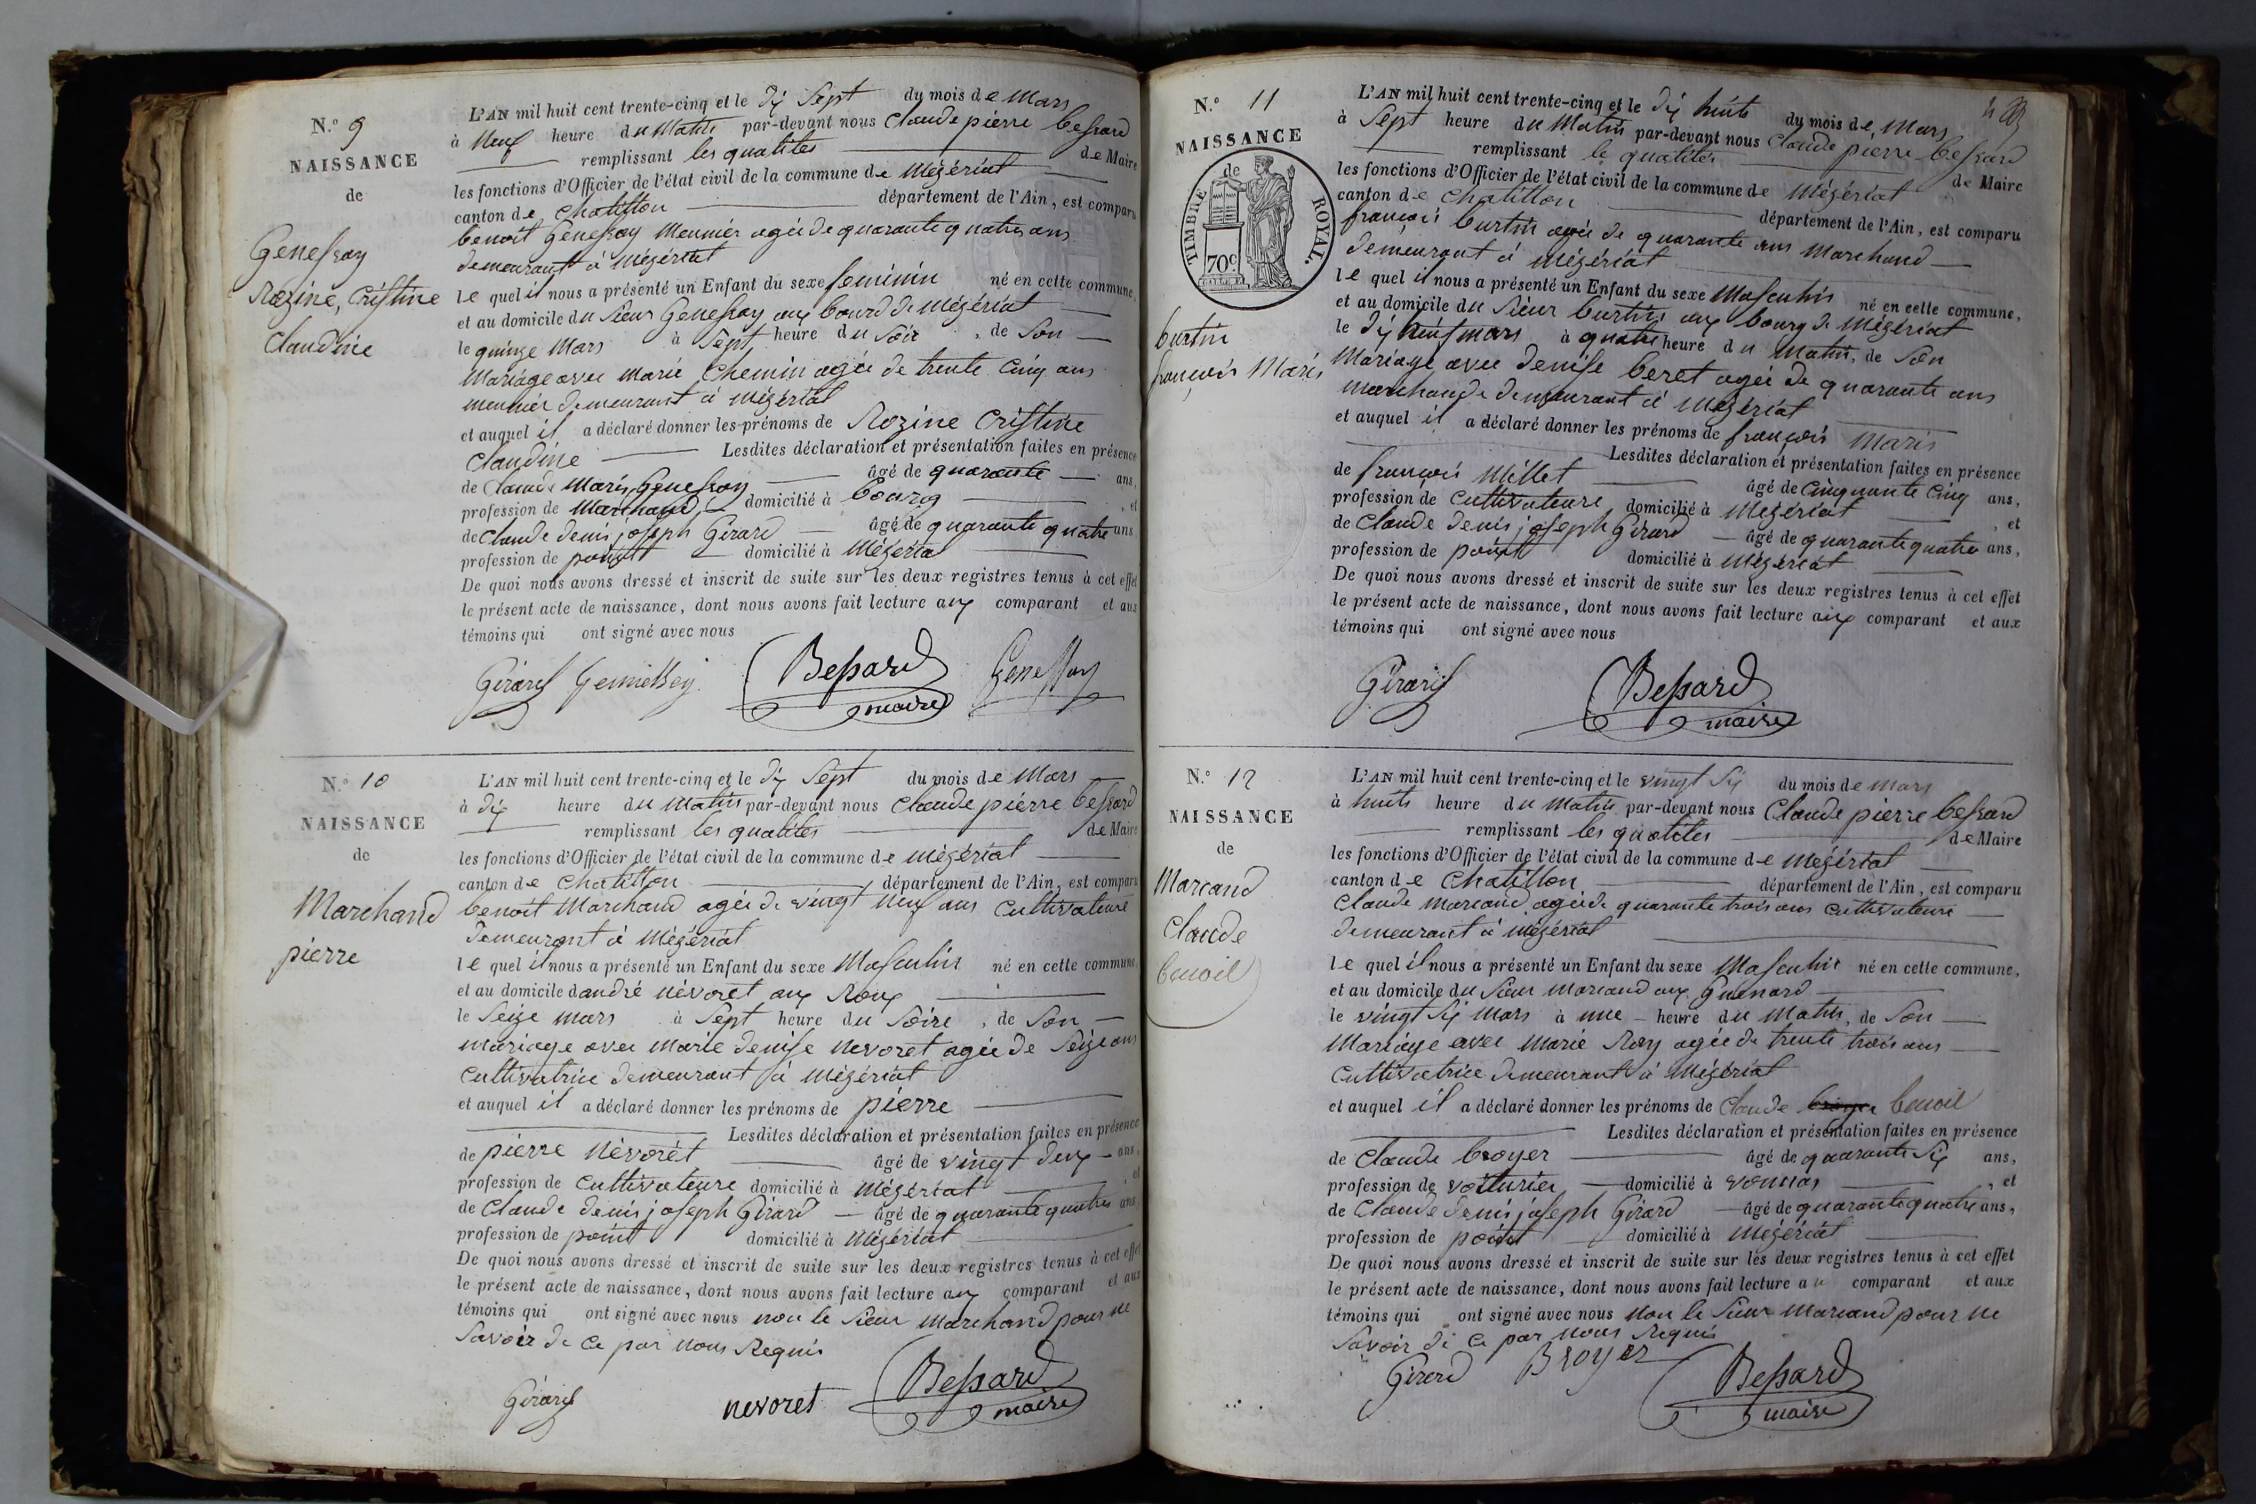 N.o 9
NAISSANCE
de
Genessay
Rozine, Cristine
Claudine
L'AN mil huit cent trente-cinq et le dix Sept du mois de Mars
à Neuf heure du Matin par-devant nous Claude pierre bessard
remplissant les qualités de Maire
les fonctions d'Officier de l'état civil de la commune de Mézériat
canton de Chatillon département de l'Ain, est comparu
benoit Genessay Meunier agée de quarante quatre ans
demeurant à Mézériat
le quel il nous a présenté un Enfant du sexe feminin né en cette commune,
et au domicile du Sieur Genessay aux bourd de Mézériat
le quinze Mars à Sept heure du Soir, de Son
Mariage avec Marie Chemin agée de trente Cinq ans
meunier demeurant à Mézériat
et auquel il a déclaré donner les prénoms de Rozine Cristine
Claudine Lesdites déclaration et présentation faites en présence
de Claude Marie Genessay âgé de quarante ans,
profession de Marchand domicilié à bourg, et
de Claude denis joseph Girard âgé de quarante quatre ans
profession de point domicilié à Mézériat
De quoi nous avons dressé et inscrit de suite sur les deux registres tenus à cet effet
le présent acte de naissance, dont nous avons fait lecture aux comparant et aux
témoins qui ont signé avec nous
Girard Bessard Genessay
maire
N.o 10
NAISSANCE
de
Marchand
pierre
L'AN mil huit cent trente-cinq et le dix Sept du mois de Mars
à dix heure du Matin par-devant nous Claude pierre bessard
remplissant les qualités de Maire
les fonctions d'Officier de l'état civil de la commune de Mézériat
canton de Chatillon département de l'Ain, est comparu
benoit Marchand agée de vingt Neuf ans Cultivateure
demeurant à Mézériat
le quel il nous a présenté un Enfant du sexe Masculin né en cette commune,
et au domicile dandré Névoret aux Roux
le Seize mars à Sept heure du Soire, de Son
mariage avec Marie denise Nevoret agée de Seize ans
Cultivatrice demeurant à Mézériat
et auquel il a déclaré donner les prénoms de pierre
Lesdites déclaration et présentation faites en présence
de pierre Névorét âgé de vingt deux ans,
profession de Cultivateure domicilié à Mézériat, et
de Claude denis joseph Girard âgé de quarante quatre ans
profession de point domicilié à Mézériat
De quoi nous avons dressé et inscrit de suite sur les deux registres tenus à cet effet
le présent acte de naissance, dont nous avons fait lecture aux comparant et aux
témoins qui ont signé avec nous non le Sieur Marchand pour ne
Savoir de Ce par nous Requis
Girard nevoret Bessard
maire
N.o 11
NAISSANCE
de
TIMBRE ROYAL.
70c
burtin
françois Marie
L'AN mil huit cent trente-cinq et le dix huit du mois de Mars
à Sept heure du Matin par-devant nous Claude pierre bessard
remplissant le qualités de Maire
les fonctions d'Officier de l'état civil de la commune de Mézériat
canton de Chatillon département de l'Ain, est comparu
françois burtin agée de quarante ans Marchand
demeurant à Mézériat
le quel il nous a présenté un Enfant du sexe Masculin né en cette commune,
et au domicile du Sieur burtin aux bourg de Mézériat
le dix Neuf mars à quatre heure du Matin, de Son
Mariage avec denise beret agée de quarante ans
marchande demeurant à Mézériat
et auquel il a déclaré donner les prénoms de françois Marie
Lesdites déclaration et présentation faites en présence
de françois Millet âgé de cinquante Cinq ans,
profession de Cultivateure domicilié à Mézériat, et
de Claude denis joseph Girard âgé de quarante quatre ans,
profession de point domicilié à Mézériat
De quoi nous avons dressé et inscrit de suite sur les deux registres tenus à cet effet
le présent acte de naissance, dont nous avons fait lecture aux comparant et aux
témoins qui ont signé avec nous
Girard Bessard
maire
N.o 12
NAISSANCE
de
Marcand
Claude
benoit
L'AN mil huit cent trente-cinq et le vingt Six du mois de mars
à huit heure du Matin par-devant nous Claude pierre bessard
remplissant les qualités de Maire
les fonctions d'Officier de l'état civil de la commune de Mézériat
canton de Chatillon département de l'Ain, est comparu
Claude Marcand agée de quarante trois ans Cultivateure
demeurant à Mézériat
le quel il nous a présenté un Enfant du sexe Masculin né en cette commune,
et au domicile du Sieur Marcand aux Guenard
le vingt Six Mars à une heure du Matin, de Son
Mariage avec Marie Roy agée de trente trois ans
Cultivatrice demeurant à Mézériat
et auquel il a déclaré donner les prénoms de Claude benoit
Lesdites déclaration et présentation faites en présence
de Claude broyer âgé de quarante Six ans,
profession de voiturier domicilié à vonnas, et
de Claude denis joseph Girard âgé de quarante quatre ans,
profession de point domicilié à Mézériat
De quoi nous avons dressé et inscrit de suite sur les deux registres tenus à cet effet
le présent acte de naissance, dont nous avons fait lecture au comparant et aux
témoins qui ont signé avec nous non le Sieur Marcand pour ne
Savoir de Ce par nous Requis
Girard Broyer Bessard
maire